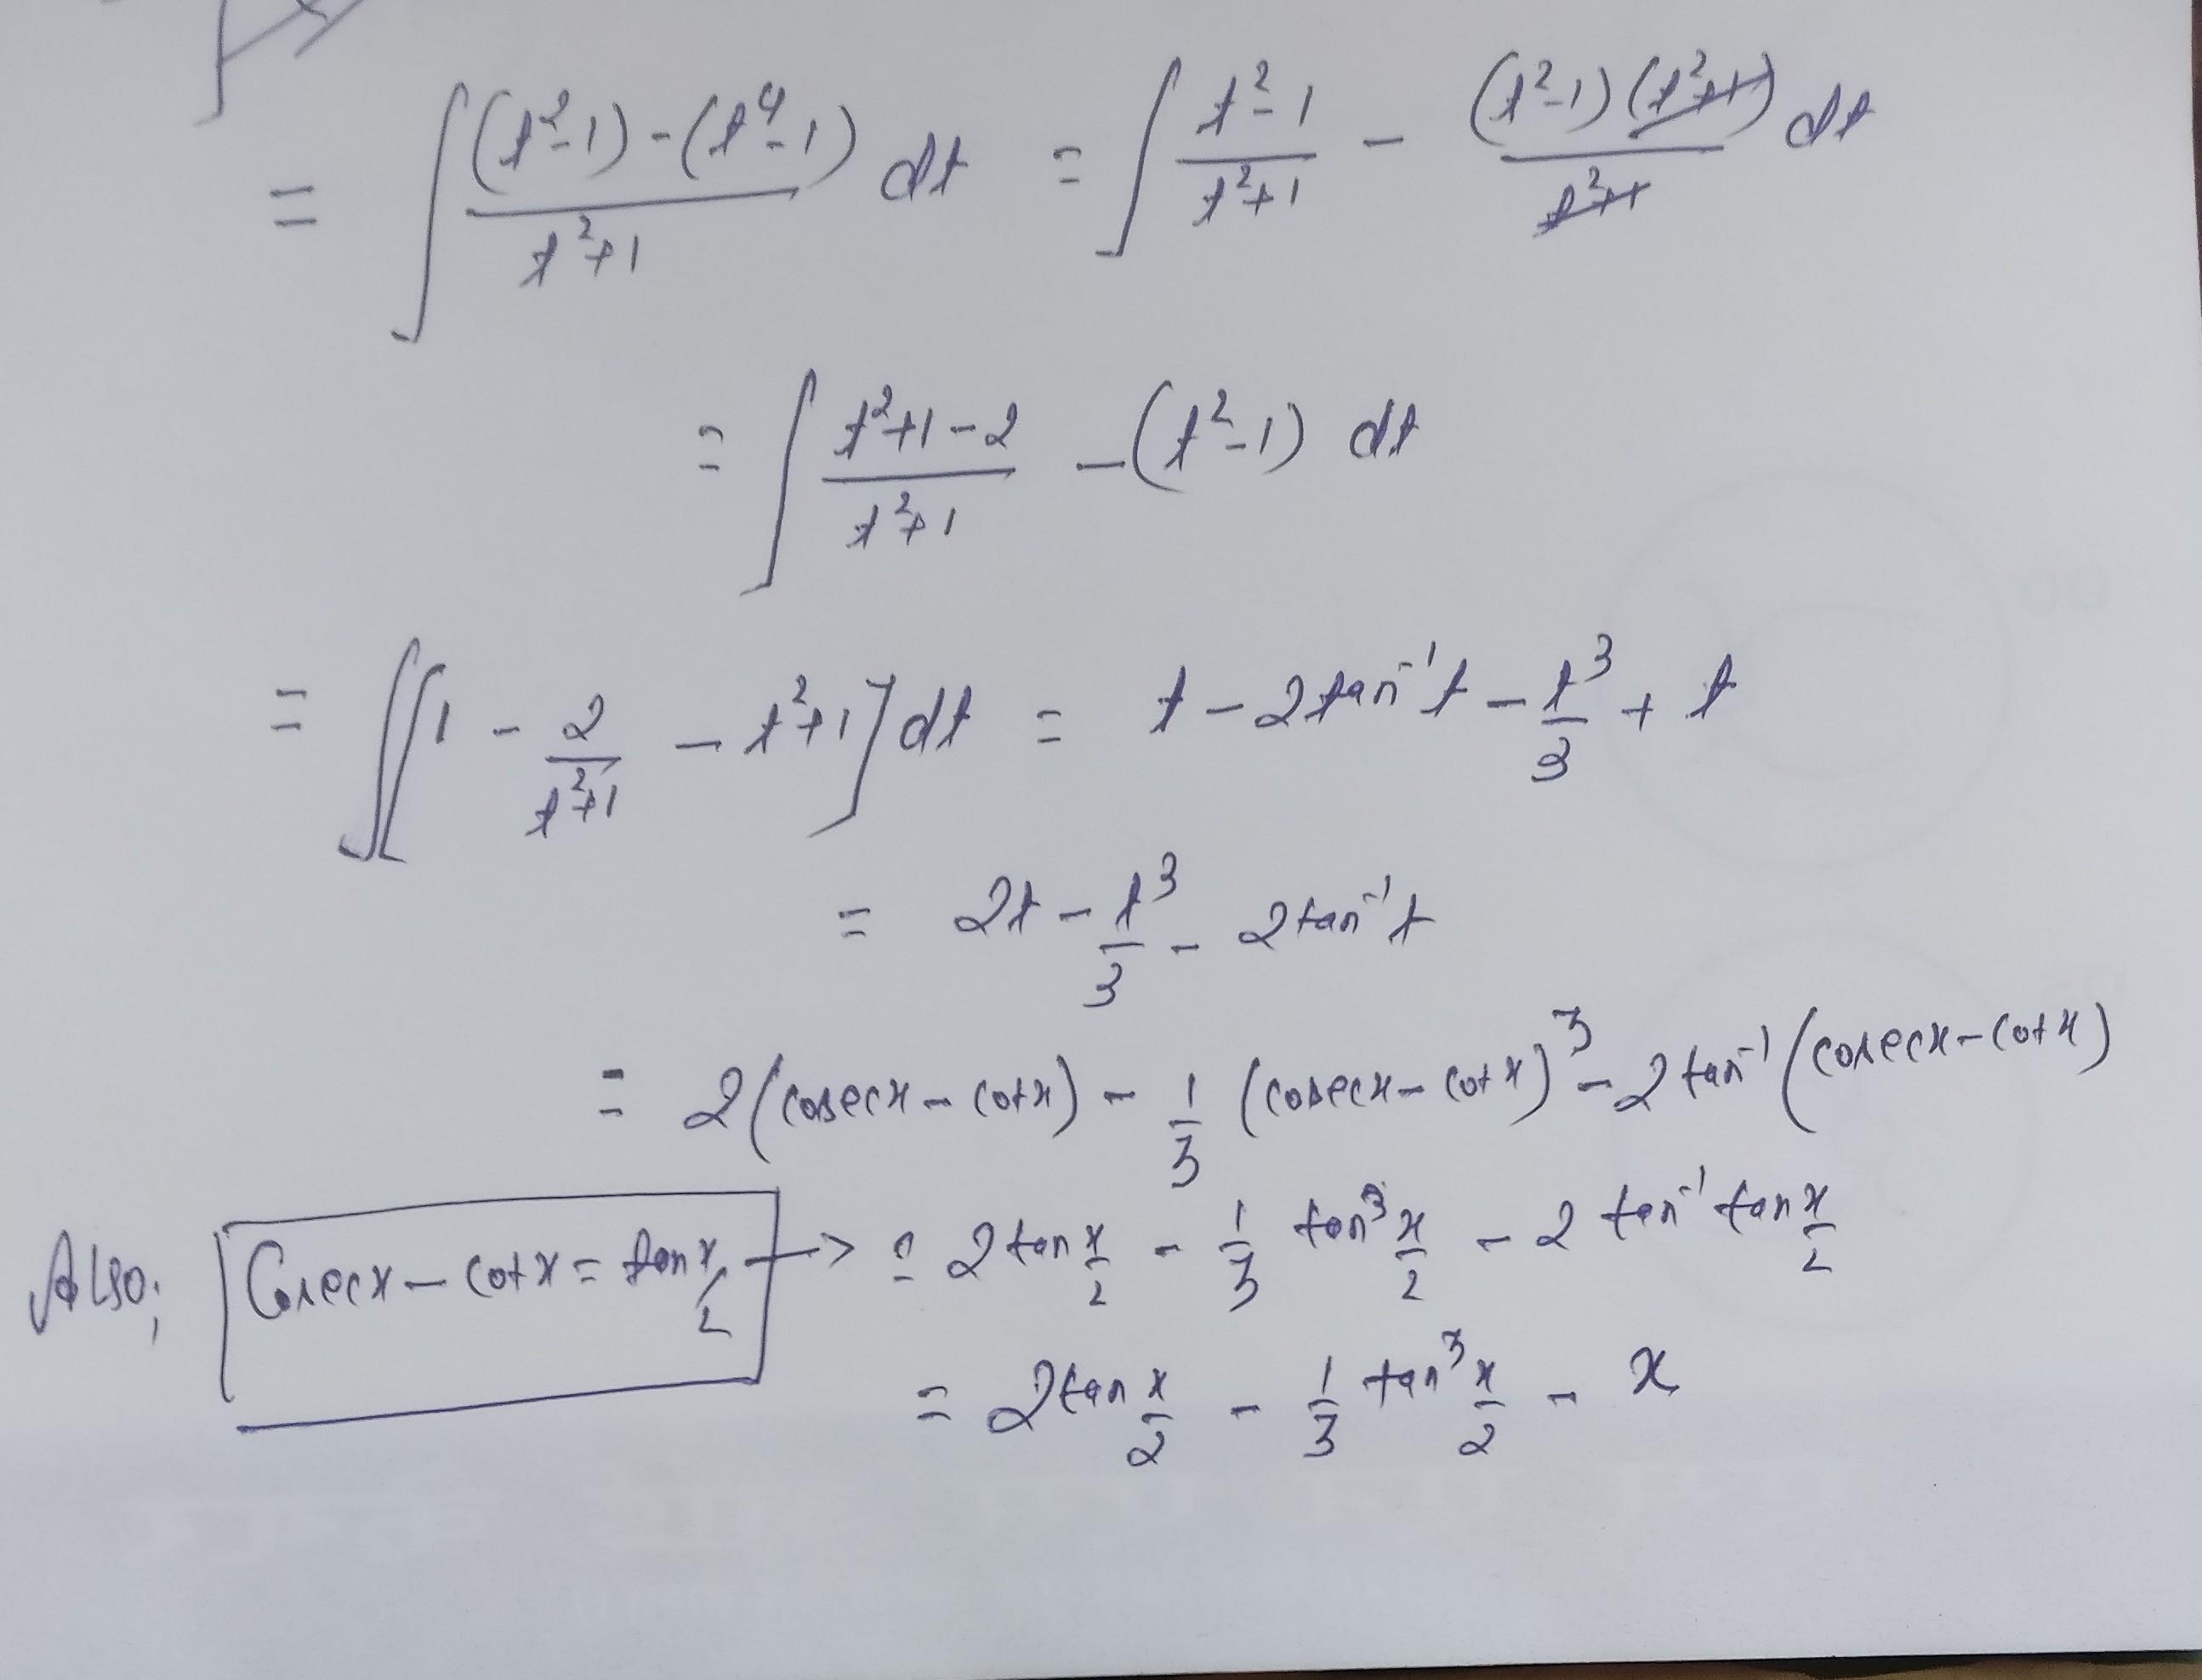 = ∫ ((t²-1)-(t⁴-1))/(t²+1) dt = ∫ (t²-1)/(t²+1) - ((t²-1)(t²+1))/(t²+1) dt
= ∫ (t²+1-2)/(t²+1) -(t²-1) dt
= ∫[1 - 2/(t²+1) - t²+1] dt = t - 2tan⁻¹t - t³/3 + t
= 2t - t³/3 - 2tan⁻¹t
= 2(cosecx - cotx) - 1/3 (cosecx - cotx)³ - 2tan⁻¹(cosecx - cotx)
Also; Cosecx - cotx = tan x/2 → = 2tan x/2 - 1/3 tan³ x/2 - 2 tan⁻¹ tan x/2
= 2tan x/2 - 1/3 tan³ x/2 - x